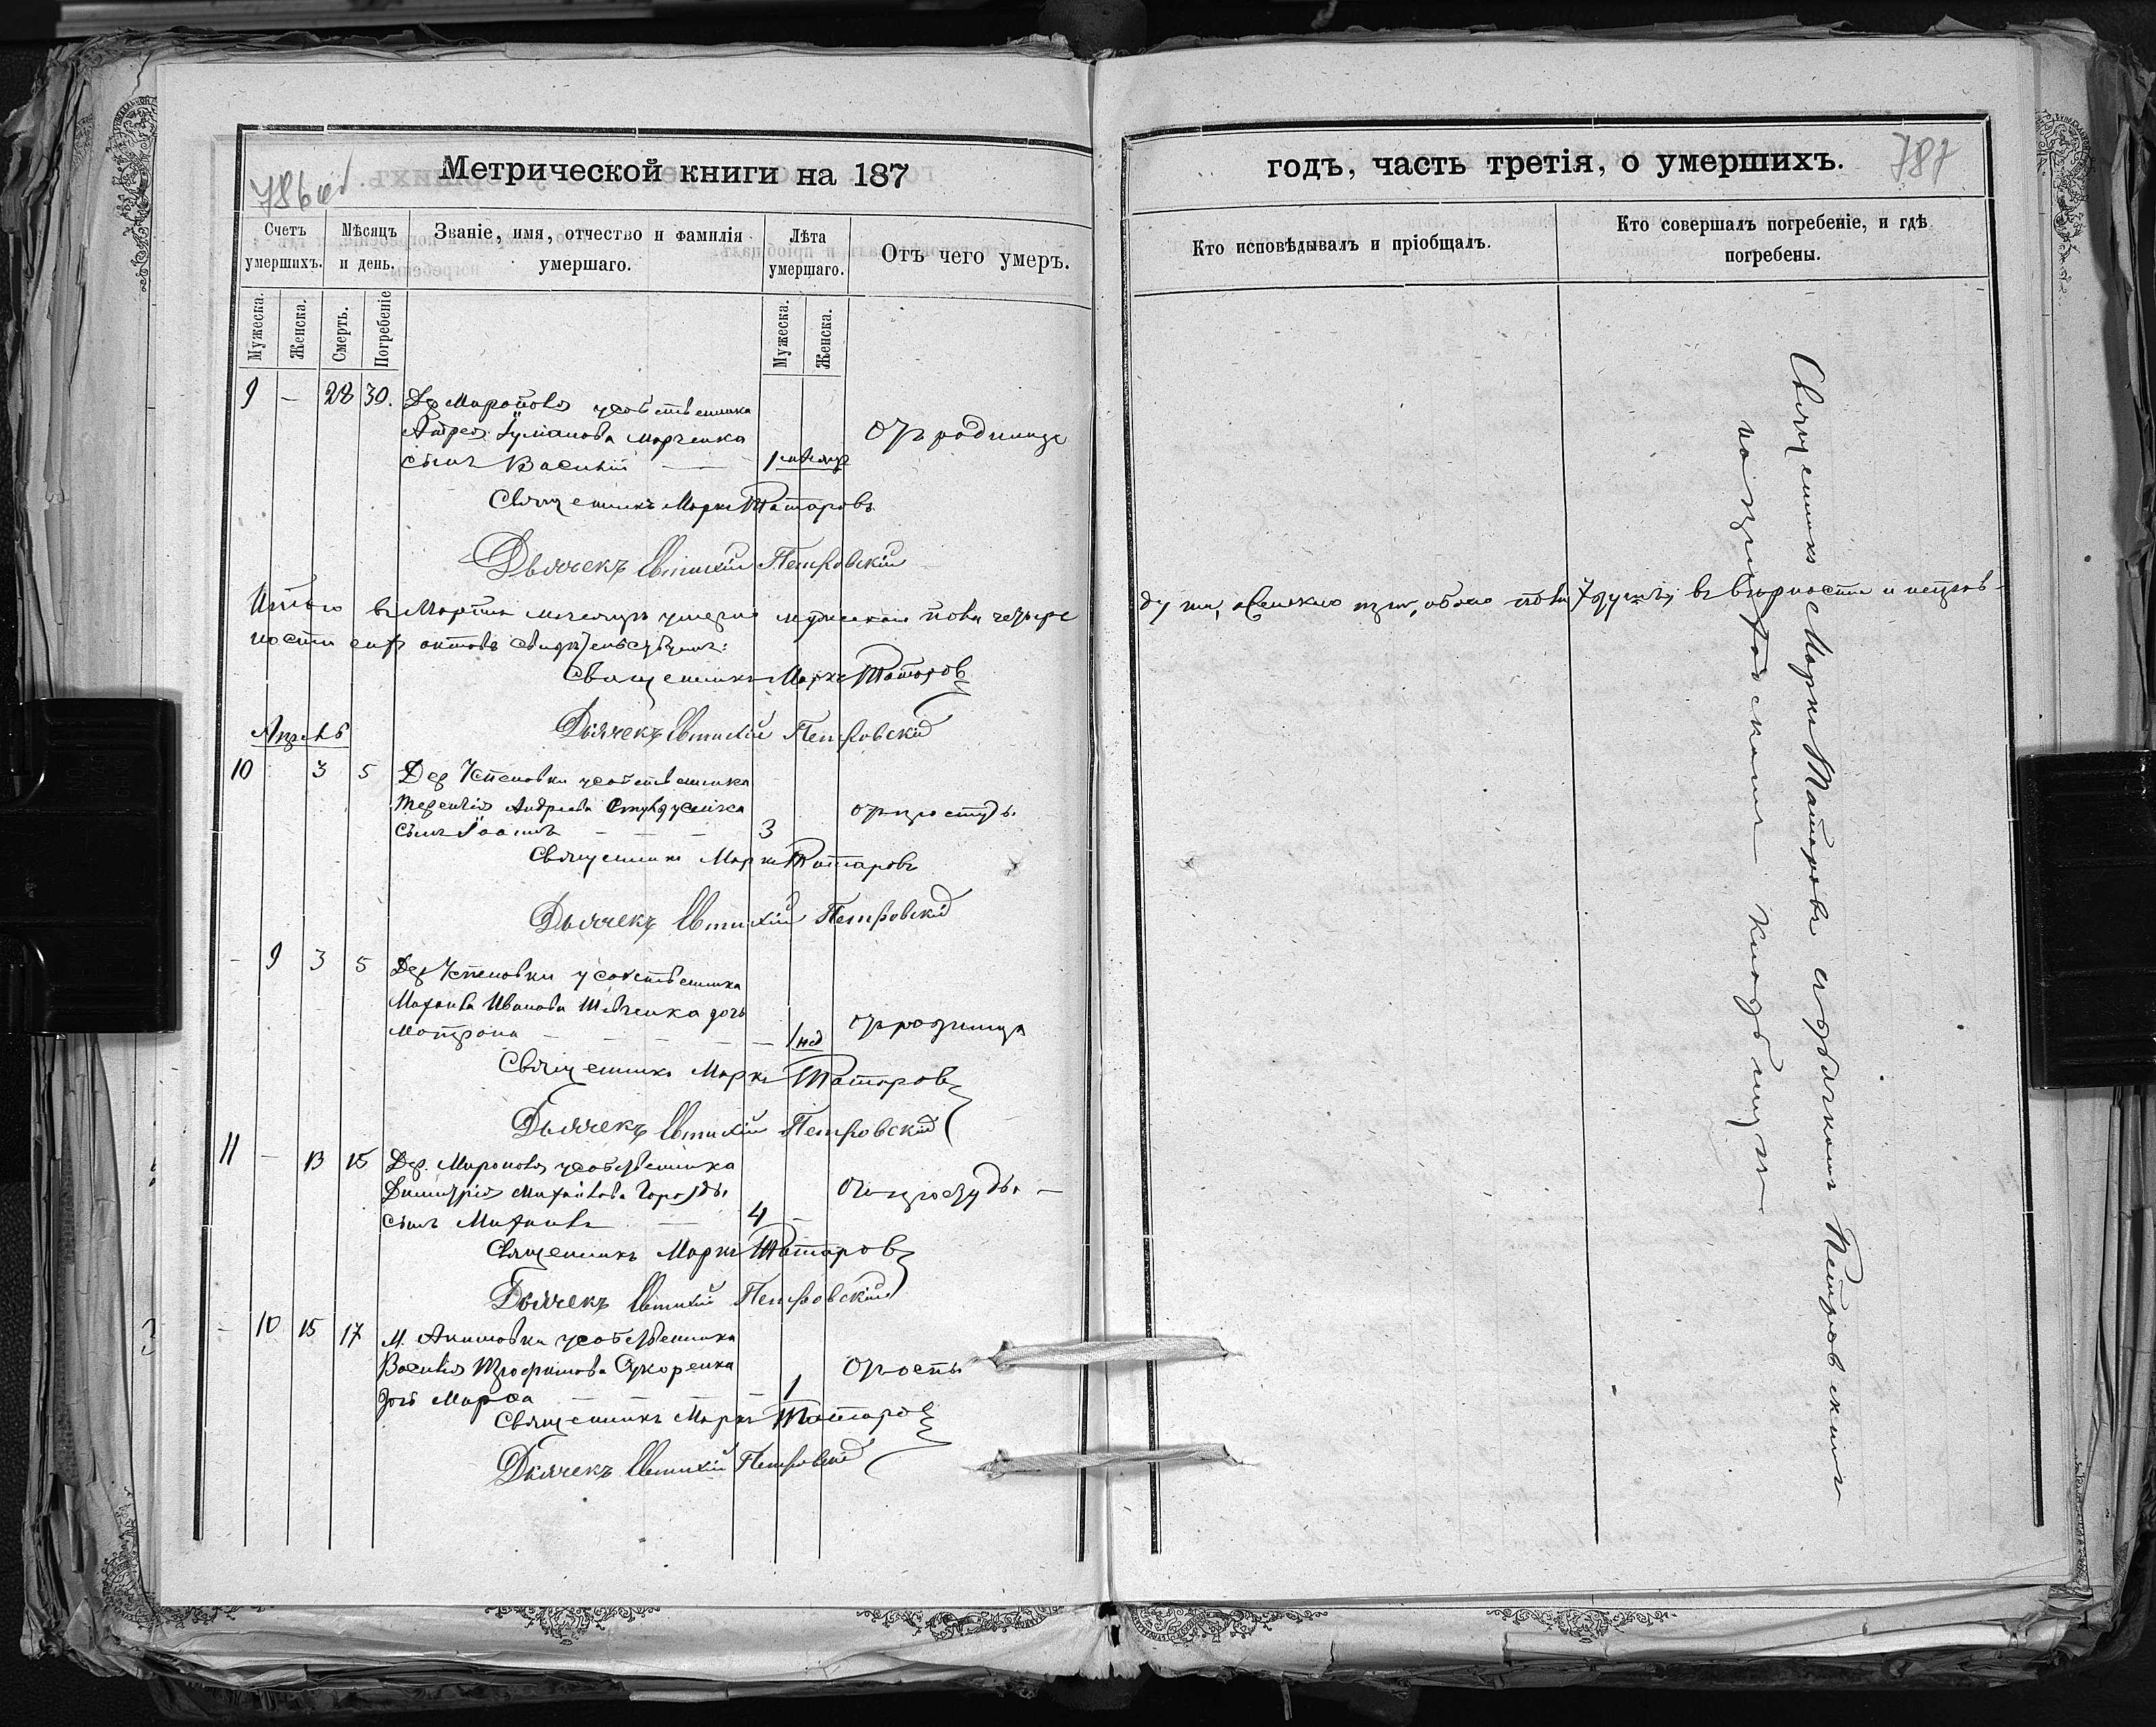 Метрической книги на 187
786 об
Счетъ умершихъ.
Мѣсяцъ и день.
Званіе, имя, отчество и фамилія умершаго.
Лѣта умершаго.
Отъ чего умеръ.
Мужеска.
Женска.
Смерть.
Погребеніе
Мужеска.
Женска.
9 – 28 30. Дер Миронова усобственника
Андрея Марченка
сынъ Василій 1 отъ родимца
Священникъ Маркъ Татаровъ
Дьячекъ Евтихій Петровскій
Итого въ Мартѣ месяцѣ умерло мужескаго пола четыре
ности сихъ актовъ свидѣтельствуемъ:
Священникъ Маркъ Татаровъ
Дьячекъ Евтихій Петровскій
Апрель
10 3 5 Дер Успеновки усобственника
Терентія Андреева
сынъ Іоаннъ 3 отъ простуды
Священникъ Маркъ Татаровъ
Дьячекъ Евтихій Петровскій
– 9 3 5 Дер Успеновки усобственника
Михаила Иванова Шевченка дочь
Мотрона 1 нед отъ родимца
Священникъ Маркъ Татаровъ
Дьячекъ Евтихій Петровскій
11 – 13 15 Дер. Миронова усобственника
Димитрія Михайлова
сынъ Михаилъ 4 отъ простуды
Священникъ Маркъ Татаровъ
Дьячекъ Евтихій Петровскій
– 10 15 17 М. Акимовки усобственника
Василія Трофимова
дочь Марѳа 1 отъ оспы
Священникъ Маркъ Татаровъ
Дьячекъ Евтихій Петровскій
годъ, часть третія, о умершихъ.
787
Кто исповѣдывалъ и пріобщалъ.
Кто совершалъ погребеніе, и гдѣ погребены.
души, женскаго три, обоего пола 7 душъ, въ верности и
Священникъ Маркъ Татаровъ съ дьячкомъ Петровскимъ
на приходскомъ кладбищѣ